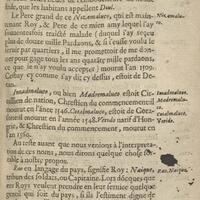 de, que les habitans appellent Duï.
Le Pere grand de ce Nizamaluco, qui est main-
tenant Roy, & Pere de ce mien amy lequel j'ay
souventesfois traicté malade (duquel j'ay receu
de douze mille Pardaons, & si j'eusse voulu le
servir par quartiers, il me promettoit
de me donner tous les ans quarante mille pardaons,
ce que je n'ay voulu accepter) mourut l'an 1509.
Cestuy cy comme j'ay dit cy dessus, estoit de De-
can.
Imadmaluco, ou bien Madremaluco estoit Cir-
de nation, Chrestien du commencement,
mourut en l'Année 1546. Cotalmaluco, estoit de Cora-
mourut à l'année 1548. Verido natif d'Hon-
grie, & Chrestien du commencement, mourut en
l'an 1560.
Au reste avant que nous venions à l'interpreta-
tion de ces noms, nous dirons quelque chose
à nostre propos.
Rao en langage du pays, signifie Roy; Naique,
tribun des soldats, ou Capitaine. Lors doncques que
ces Roys veulent prendre en leur service quelque
qui soit du pays, si ils l'estiment digne de
Nizamaluco.
Imadmaluco.
Madremaluco.
Cotalmaluco.
Verido.
Rao. Naique.